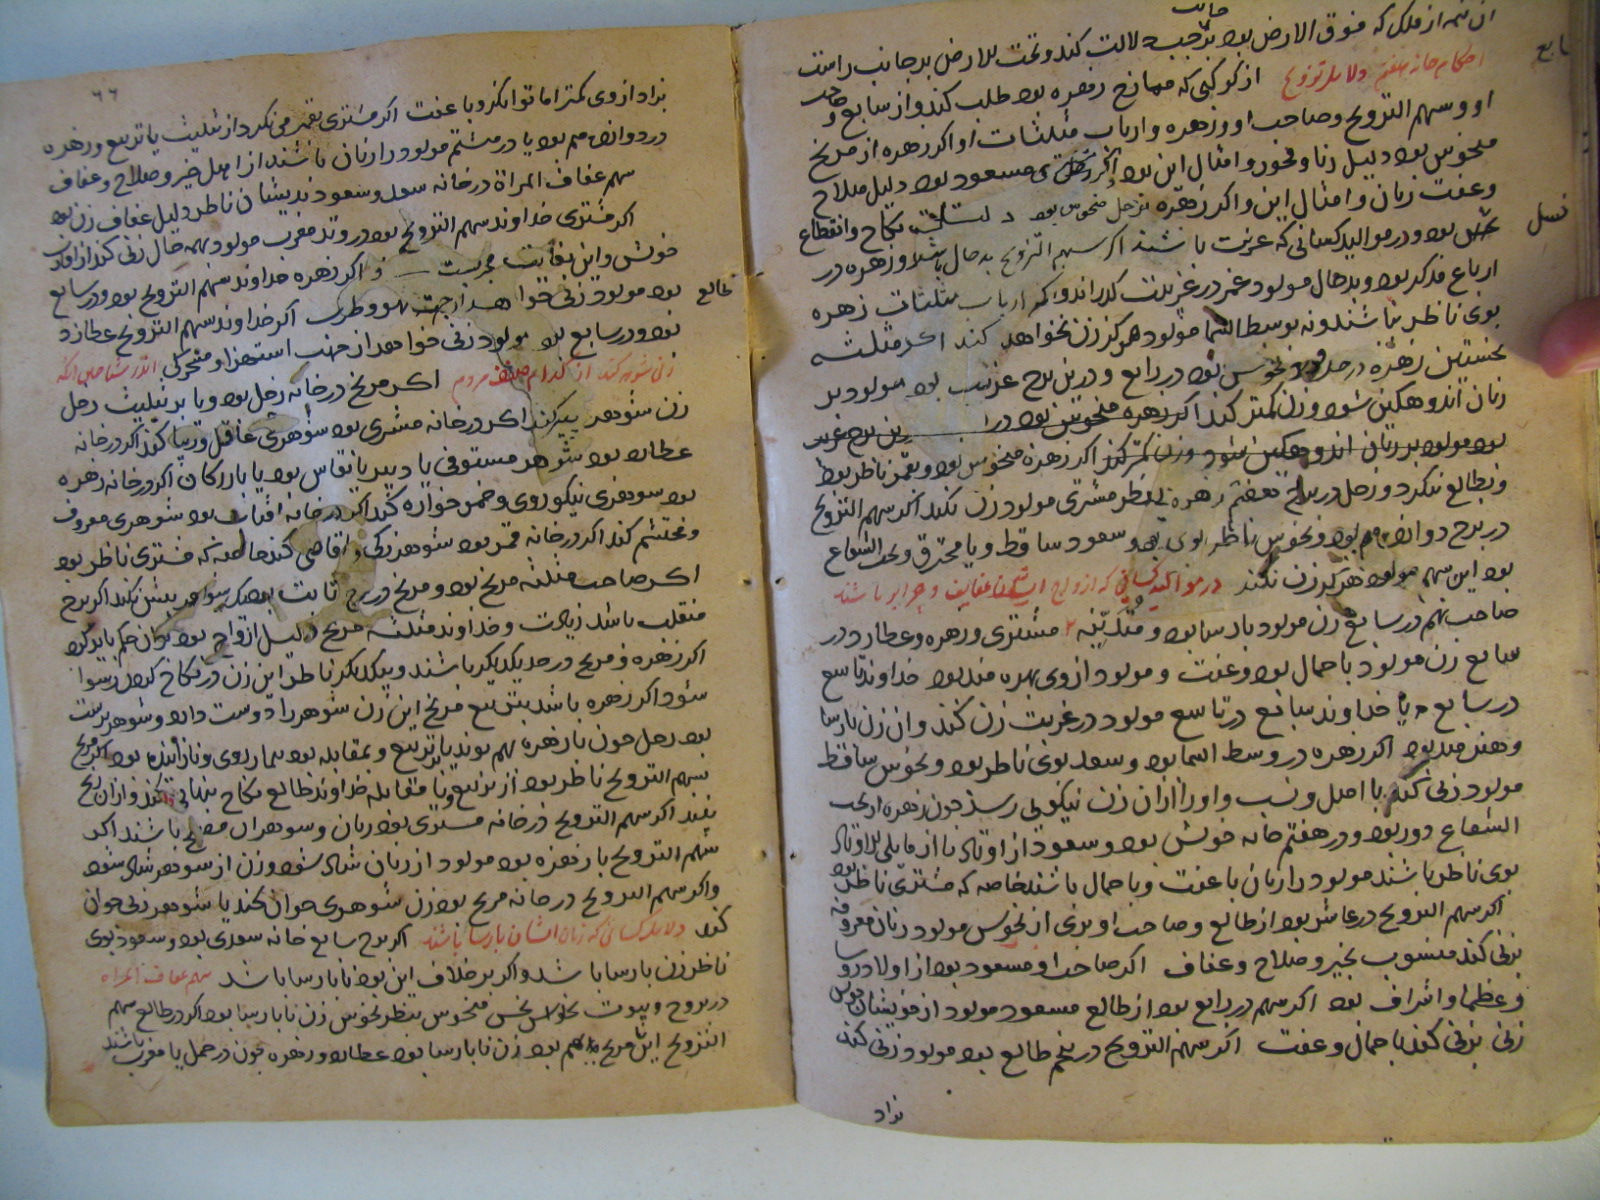 آن نیمه از فلک که فوق الارض بود بر جانب چپ دلالت کند و تحت الارض بر جانب راست
احکام خانه هفتم دلایل تزویج از کوکبی که ممازج زهره بود طلب کند و از سابع و صاحب
او و سهم التزویج و صاحب او و زهره و ارباب مثلثات او اگر زهره از مریخ
منحوس بود دلیل زنا و فجور و امثال این بود و اگر مسعود بود دلیل صلاح
و عفت زنان و امثال این و اگر زهره بزحل منحوس بود نکاح و انقطاع
نسل
نسل بود و در موالید کسانی که عزب باشند اگر سهم التزویج بد حال باشد و زهره در
ارباع مذکر بود و بدحال مولود عمر در عزبت گذراند و گر ارباب مثلثات زهره
بوی ناظر نباشند و نه بوسط السما مولود هرگز زن نخواهد کند اگر مثلثه
نخستین زهره در نحوس بود در رابع و در برج غریب بود مولود بر
زنان اندوهگین شود و زن کمتر کند اگر زهره منحوس بود در برج غریب
بود مولود بر زنان اندوهگین شود و زن کمتر کند اگر زهره منحوس بود و بقمر ناظر بود
و بطالع ننگرد و زحل در هفتم زهره بی نظر مشتری مولود زن نکند اگر سهم التزویج
در برج دوازدهم بود و نحوس ناظر بوی بود و سعود ساقط و یا محترق و تحت الشعاع
بود این سهم مولود هرگز زن نکند در موالید کسانی که ازواج ایشان عفایف و حرایر باشند
صاحب نهم در سابع زن مولود پارسا بود و متدینه مشتری و زهره و عطارد در
سابع زن مولود با جمال بود و عفت و مولود از وی بهره مند بود خداوند تاسع
در سابع یا خداوند سابع در تاسع مولود در غربت زن کند و آن زن پارسا
و هنرمند بود اگر زهره در وسط السما بود و سعد بوی ناظر بود و نحوس ساقط
مولود زنی کند با اصل و نسب و او را از آن زن نیکوئی رسد چون زهره از تحت
الشعاع دور بود و در هفتم خانه خویش بود و سعود از اوتاد یا از مایلی الاوتاد
بوی ناظر باشند مولود را زنان با عفت و با جمال باشند خاصه که مشتری ناظر بود
اگر سهم التزویج در عاشر بود از طالع و صاحب او بری از نحوس مولود زنان معروفه
بزنی کند منسوب بخیر و صلاح و عفاف اگر صاحب او مسعود بود از اولاد روسا
و عظما و اشراف بود اگر سهم در رابع بود از طالع مسعود مولود از خویشان خویش
زنی بزنی کند با جمال و عفت اگر سهم التزویج در پنجم طالع بود مولود زنی کند
نژاد
٦٦
نژاد از وی کمتر اما توانگر و با عفت اگر مشتری بقمر می نگرد از تثلیث یا تربیع و زهره
در دوازدهم بود یا در هشتم مولود را زنان باشند از اهل خیر و صلاح و عفاف
سهم عفاف المراة در خانه سعد و سعود بدیشان ناظر دلیل عفاف زن بود
اگر مشتری خداوند سهم التزویج بود در وتد مغرب مولود بهمه حال زنی کند از اقارب
خویش و این بغایت مجربست و اگر زهره خداوند سهم التزویج بود و در سابع
طالع
بود مولود زنی خواهد از جهت لهو و طرب اگر خداوند سهم التزویج عطارد
بود و در سابع بود مولود زنی خواهد از جهت استهزا و مسخرگی اندر شناختن آنکه
زنی شوهر کند از کدام صنف مردم اگر مریخ در خانه زحل بود و یا بر تثلیث زحل
زن شوهر پیر کند اگر در خانه مشتری بود شوهری عاقل و زیبا کند اگر در خانه
عطارد بود شوهر مستوفی یا دبیر یا نقاش بود یا بازرگان اگر در خانه زهره
بود شوهری نیکو روی و خمر خواره کند اگر در خانه آفتاب بود شوهری معروف
و محتشم کند اگر در خانه قمر بود شوهر زیرک و قاضی کند خاصه که مشتری ناظر بود
اگر صاحب مثلثه مریخ بود و مریخ در برج ثابت بود یک شوهر بیش نکند اگر برج
منقلب باشد زیادت و خداوند مثلثه مریخ دلیل ازواج بود بر آن حکم باید کرد
اگر زهره و مریخ در حد یکدیگر باشند و بیکدیگر ناظر این زن در نکاح کردن رسوا
شود اگر زهره باشد بتربیع مریخ این زن شوهر را دوست دارد و شوهر پرست
بود زحل چون با زهره بهم بوند یا بتربیع و بمقابله بود بیمار روی و نازاینده بود اگر مریخ
بسهم التزویج ناظر بود از تربیع و یا مقابله خداوند طالع نکاح پنهانی کند و از آن رنج
بیند اگر سهم التزویج در خانه مشتری بود زنان و شوهران مصلح باشند اگر
سهم التزویج با زهره بود مولود از زنان شاد شود و زن از شوهر شاد شود
و اگر سهم التزویج در خانه مریخ بود زن شوهری جوان کند یا شوهر زنی جوان
کند دلایل کسانی که زنان ایشان پارسا باشند اگر برج سابع خانه سعدی بود و سعود بوی
ناظر زن پارسا باشد و اگر بر خلاف این بود ناپارسا باشد سهم عفاف المراه
در بروج و بیوت نحوس منحوس بنظر نحوس زن ناپارسا بود اگر در طالع سهم
التزویج مریخ بهم بود زن ناپارسا بود عطارد و زهره چون در حمل یا عقرب باشند